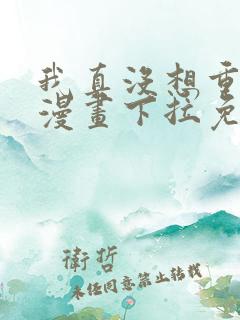 我真没想重
漫畫下拉免
衛哲
未经同意禁止转载